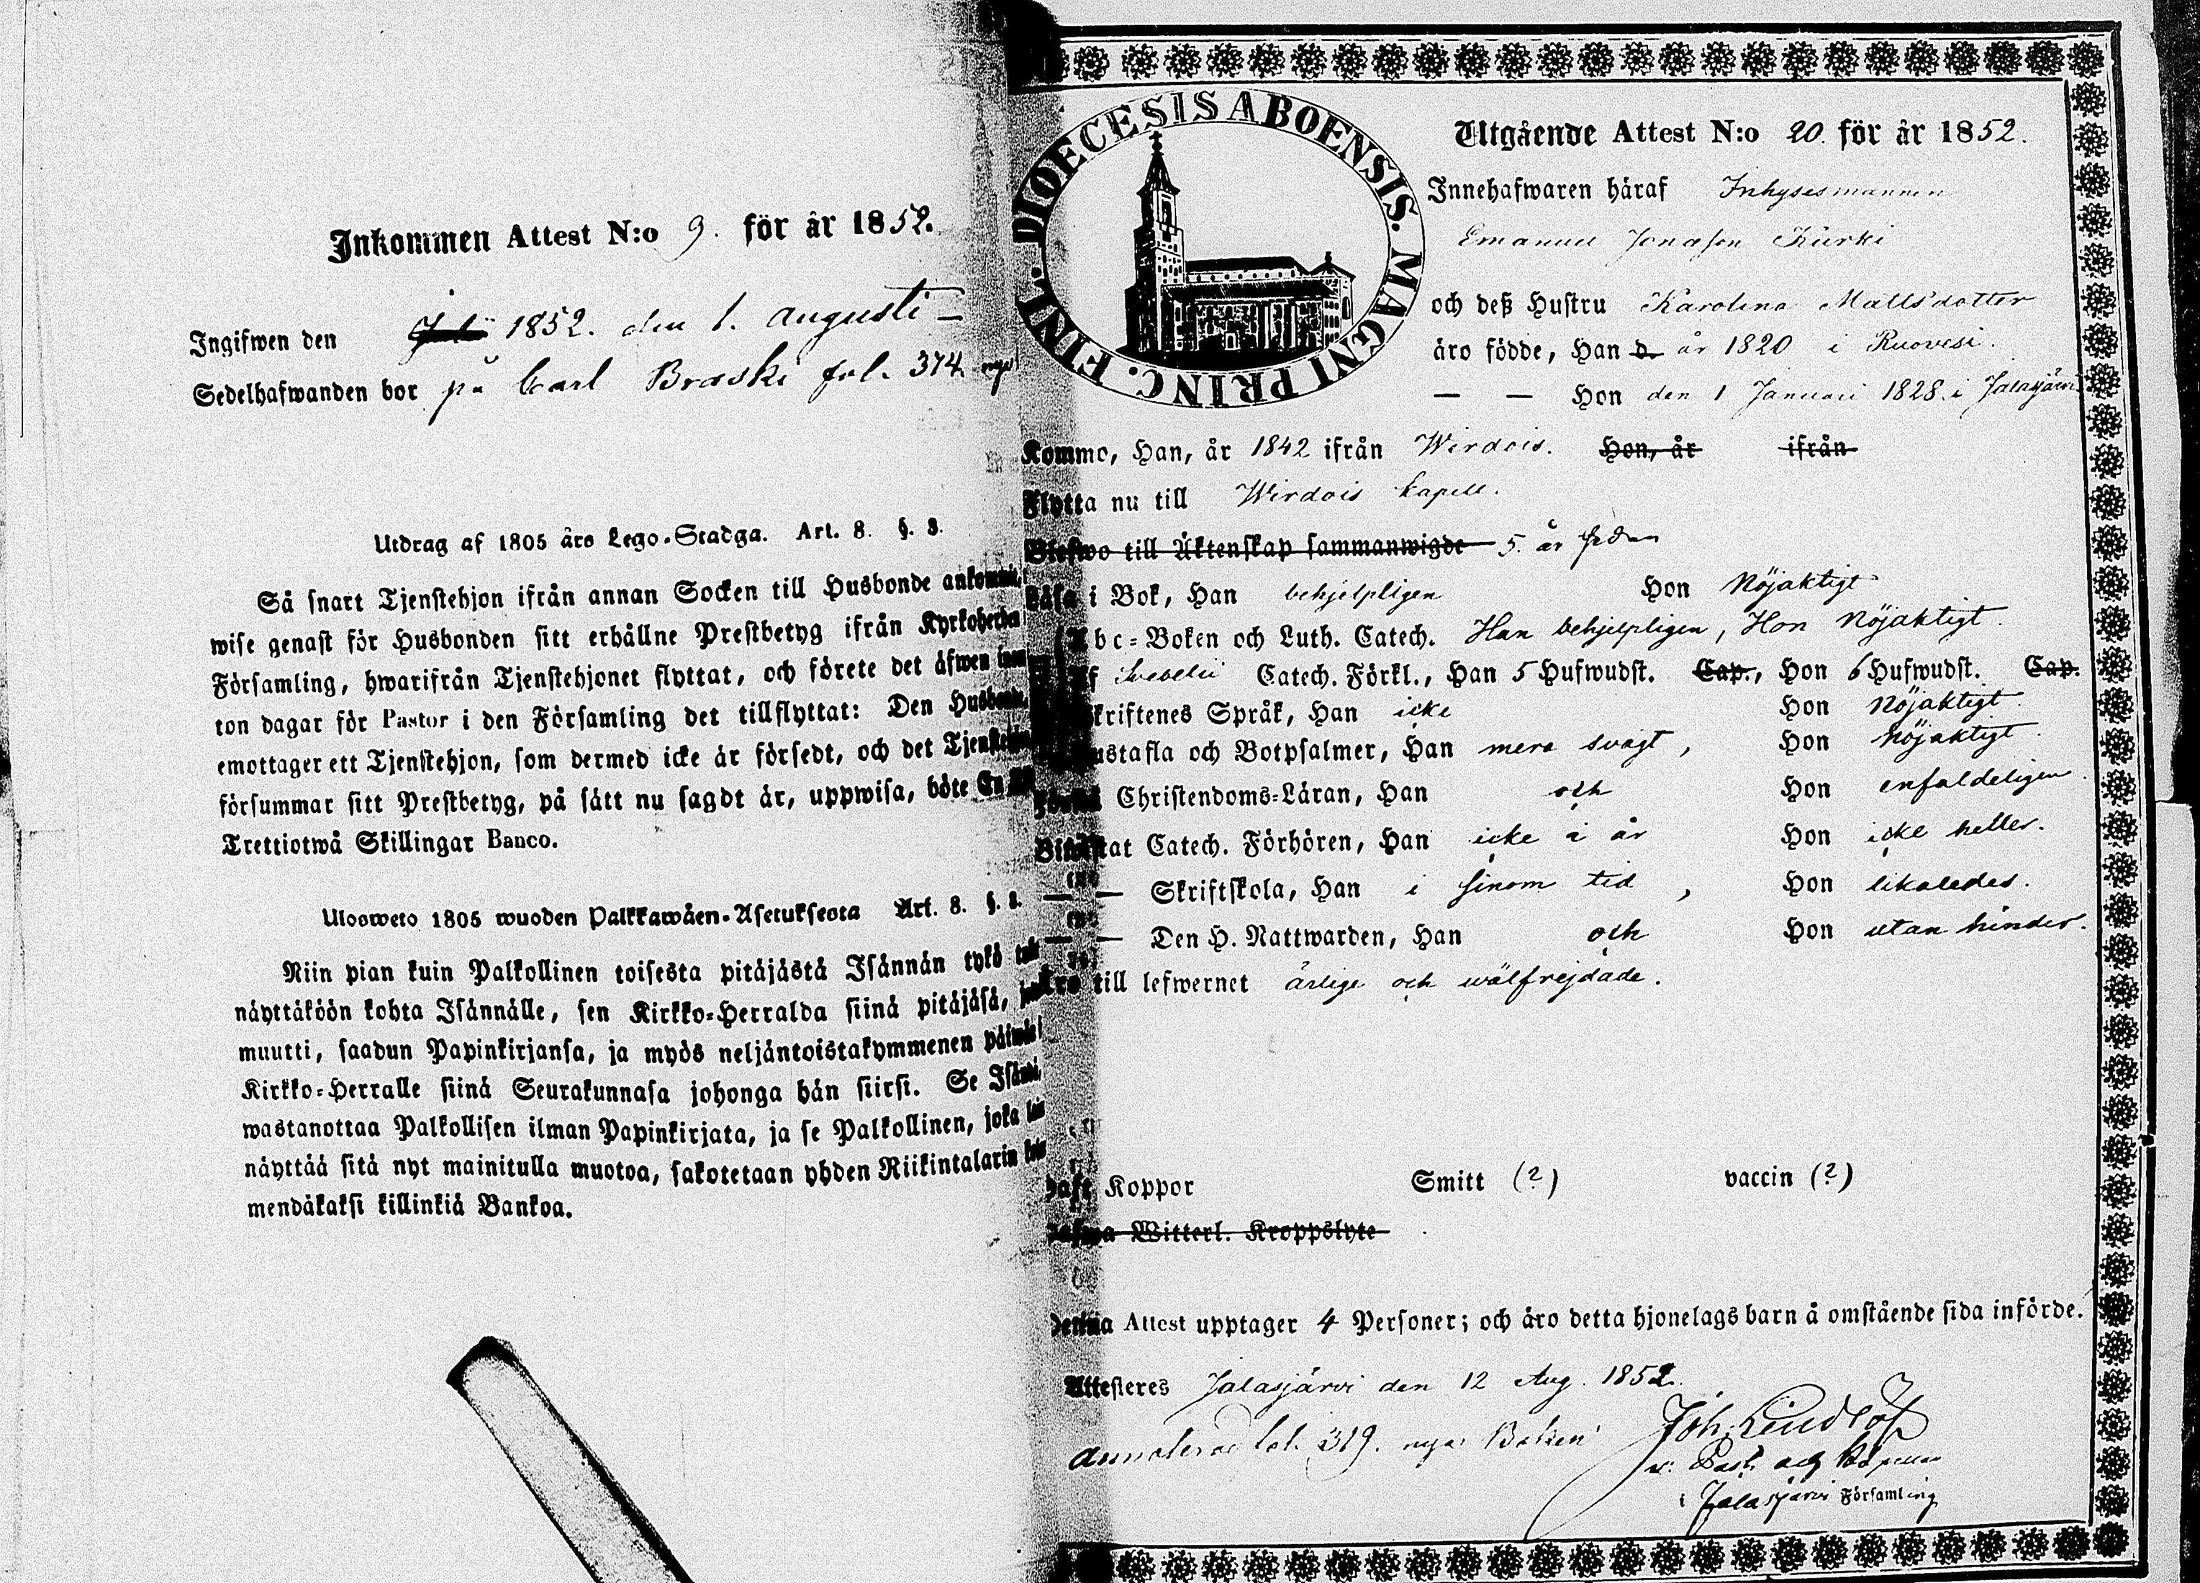 Inkommen Attest N:o 9. för år 1852.
Ingifwen den 1852. den 1. augusti
Sedelhafwanden bor på Carl Braski fol. 374
Utdrag af 1805 års Lego-Stadga. Art. 8. §. 3.
Så snart Tjenstehjon ifrån annan Socken till Husbonde
wise genast för Husbonden sitt erhållne Prestbetyg ifrån Kyrkoherden
Församling, hwarifrån Tjenstehjonet flyttat, och förete det äfwen
ton dagar för Pastor i den Församling det tillflyttat: Den
emottager ett Tjenstehjon, som dermed icke är försedt, och det
försummar sitt Prestbetyg, på sätt nu sagdt är, uppwisa, böte En
Trettiotwå Skillingar Banco.
Ulosweto 1805 wuoden Palkkawäen-Asetuksesta Art. 8. §.
Niin pian kuin Palkollinen toisesta pitäjästä Isännän tykö
näyttäköön kohta Isännälle, sen Kirkko-Herralda siinä pitäjäsä,
muutti, saadun Papinkirjansa, ja myös neljäntoistakymmenen
Kirkko-Herralle siinä Seurakunnasa johonga hän siirsi. Se
wastanottaa Palkollisen ilman Papinkirjata, ja se Palkollinen, joka
näyttää sitä nyt mainitulla muotoa, sakotetaan yhden Riikintalarin
mendäkaksi killinkiä Bankoa.
FINL. DIOECESIS ABOENSIS. MAGNI PRINC.
Utgående Attest N:o 20. för år 1852.
Innehafwaren häraf Inhysesmannen
Emanuel Jonasson Kurki
och deß Hustru Karolina Mattsdotter
äro födde, Han d. år 1820 i Ruovesi.
— — Hon den 1 Januari 1828. i Jalasjärvi
Komme, Han, år 1842 ifrån Wirdois. Hon, år ifrån
Flytta nu till Wirdois kapell.
Blefwo till Äktenskap sammanwigde 5. år sedan
Läsa i Bok, Han behjelpligen Hon Nöjaktigt
Abc-Boken och Luth. Catech. Han behjelpligen, Hon Nöjaktigt.
Af Svebelii Catech. Förkl., Han 5 Hufwudst. Cap., Hon 6 Hufwudst. Cap.
Skriftenes Språk, Han icke Hon Nöjaktigt.
Hustafla och Botpsalmer, Han mera svagt, Hon Nöjaktigt.
Förstå Christendoms-Läran, Han och Hon enfaldeligen.
Biwistat Catech. Förhören, Han icke i år Hon icke heller.
— — Skriftskola, Han i sinom tid, Hon likaledes.
— — Den H. Nattwarden, Han och Hon utan hinder.
Äro till lefwernet ärlige och wälfrejdade.
Haft Koppor Smitt (?) vaccin (?)
Hafwa Witterl. Kroppslyte
Denna Attest upptager 4 Personer; och äro detta hjonelags barn å omstående sida införde.
Attesteres Jalasjärvi den 12 Aug. 1852.
fol. 319. nya Boken Joh. Lindlöf
v. Past. och Kapellan
i Jalasjärvi Församling